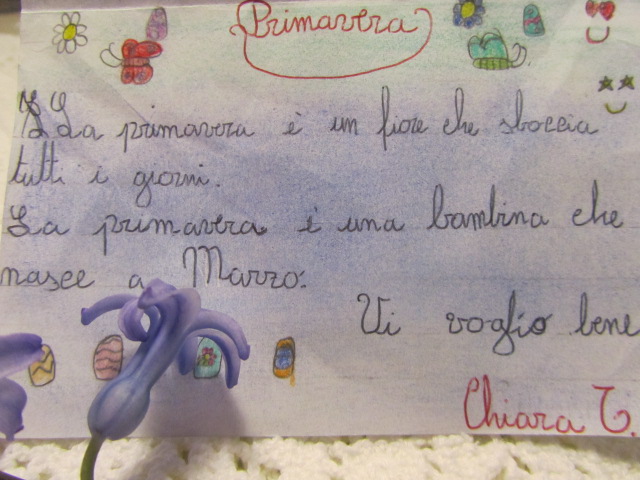 Primavera
La primavera è un fiore che sboccia
tutti i giorni.
La primavera è una bambina che
nasce a Marzo.
Vi voglio bene
Chiara T.